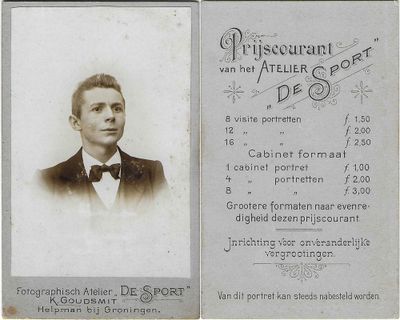 Fotographisch Atelier „DE SPORT"
K. GOUDSMIT
Helpman bij Groningen.
Prijscourant
van het ATELIER
„DE SPORT"
8 visite portretten f 1,50
12 „ „ f 2,00
16 „ „ f 2,50
Cabinet formaat
1 cabinet portret f 1,00
4 „ portretten f 2,00
8 „ „ f 3,00
Grootere formaten naar evenre-
digheid dezen prijscourant.
Inrichting voor onveranderlijke
vergrootingen.
Van dit portret kan steeds nabesteld worden.